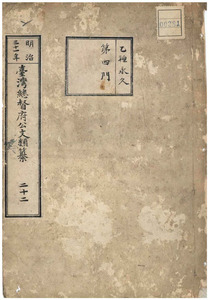 乙種永久
第四門
明治
三十一年
臺灣總督府公文類纂
二十二